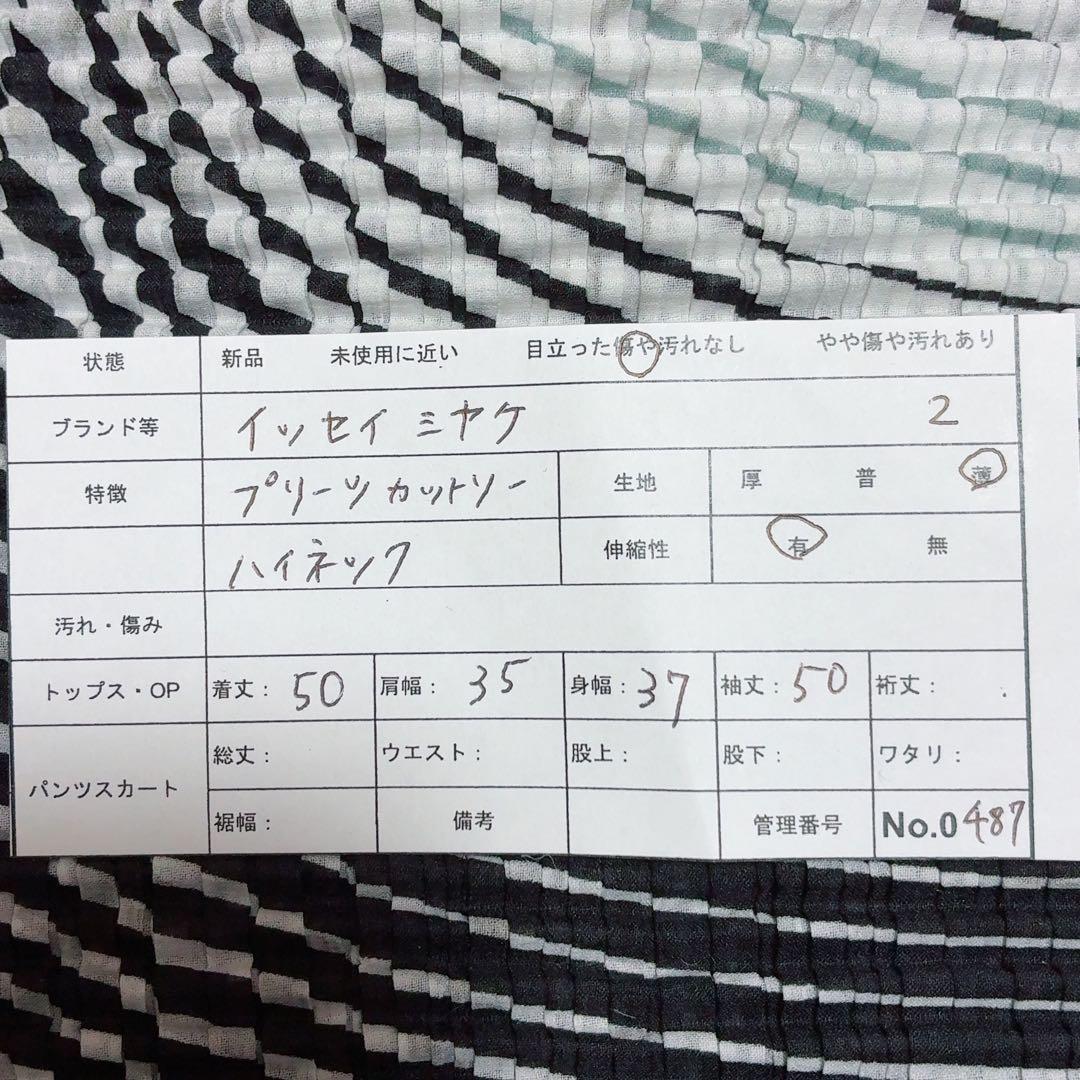 状態 新品 未使用に近い 目立った傷や汚れなし やや傷や汚れあり
ブランド等 イッセイ ミヤケ 2
特徴 プリーツカットソー 生地 厚 普 薄
ハイネック 伸縮性 有 無
汚れ・傷み
トップス・OP 着丈: 50 肩幅: 35 身幅: 37 袖丈: 50 裄丈:
パンツスカート 総丈: ウエスト: 股上: 股下: ワタリ:
裾幅: 備考 管理番号 No.0487